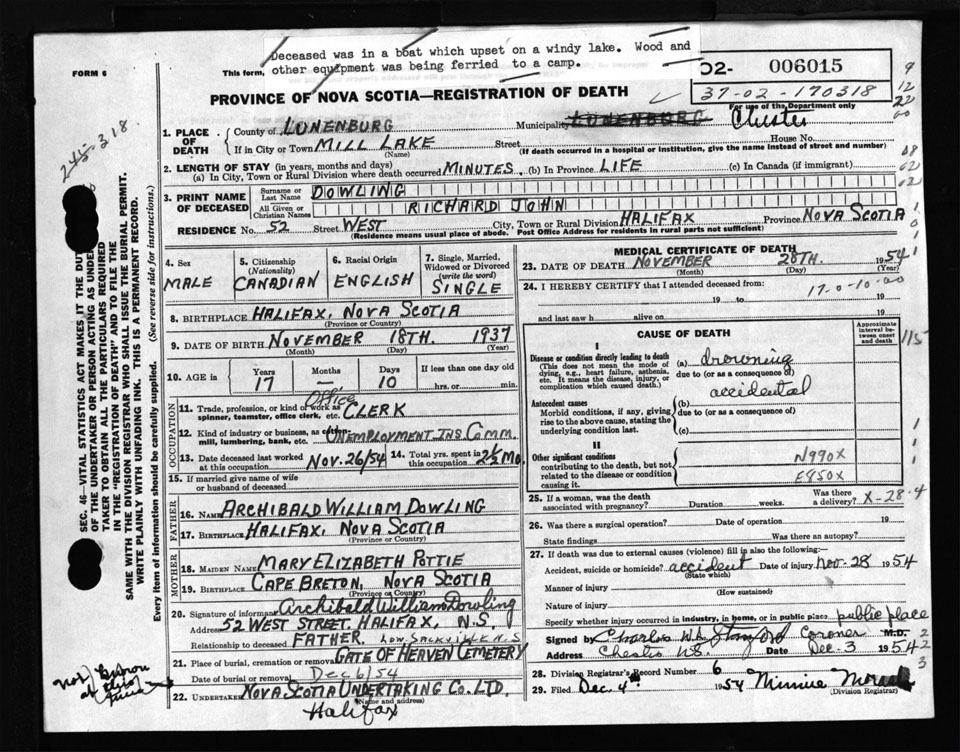 Deceased was in a boat which upset on a windy lake. Wood and
other equipment was being ferried to a camp.
FORM 6
This form,
02- 006015
37-02-170318
For use of the Department only
PROVINCE OF NOVA SCOTIA—REGISTRATION OF DEATH
1. PLACE OF DEATH
County of LUNENBURG Municipality LUNENBURG Chester
If in City or Town MILL LAKE Street House No.
(Name) (If death occurred in a hospital or institution, give the name instead of street and number)
2. LENGTH OF STAY (in years, months and days)
(a) In City, Town or Rural Division where death occurred MINUTES (b) In Province LIFE (c) In Canada (if immigrant)
3. PRINT NAME OF DECEASED
Surname or Last Name DOWLING
All Given or Christian Names RICHARD JOHN
RESIDENCE No. 52 Street WEST City, Town or Rural Division HALIFAX Province NOVA SCOTIA
(Residence means usual place of abode. Post Office Address for residents in rural parts not sufficient)
4. Sex
MALE
5. Citizenship (Nationality)
CANADIAN
6. Racial Origin
ENGLISH
7. Single, Married, Widowed or Divorced (write the word)
SINGLE
8. BIRTHPLACE HALIFAX, NOVA SCOTIA
(Province or Country)
9. DATE OF BIRTH NOVEMBER 18TH. 1937
(Month) (Day) (Year)
10. AGE in Years Months Days If less than one day old
17 — 10 hrs. or min.
OCCUPATION
11. Trade, profession, or kind of work as Office CLERK
spinner, teamster, office clerk, etc.
12. Kind of industry or business, as cotton mill, lumbering, bank, etc. UNEMPLOYMENT INS COMM.
13. Date deceased last worked at this occupation NOV. 26/54
14. Total yrs. spent in this occupation 2½ MO.
15. If married give name of wife or husband of deceased
FATHER
16. Name ARCHIBALD WILLIAM DOWLING
17. Birthplace HALIFAX, NOVA SCOTIA
(Province or Country)
MOTHER
18. MAIDEN NAME MARY ELIZABETH POTTIE
19. BIRTHPLACE CAPE BRETON, NOVA SCOTIA
(Province or Country)
20. Signature of informant Archibald William Dowling
Address 52 WEST STREET. HALIFAX, N.S.
Relationship to deceased FATHER. LOW. SACKVILLE N.S
21. Place of burial, cremation or removal GATE OF HEAVEN CEMETERY
Date of burial or removal Dec 6/54
22. UNDERTAKER NOVA SCOTIA UNDERTAKING CO. LTD.
(Name and address)
Halifax
MEDICAL CERTIFICATE OF DEATH
23. DATE OF DEATH NOVEMBER 28TH. 1954
(Month) (Day) (Year)
24. I HEREBY CERTIFY that I attended deceased from:
17-0-10-00
19 to 19
and last saw h alive on 19
CAUSE OF DEATH
Approximate interval between onset and death
I
Disease or condition directly leading to death (a) drowning
(This does not mean the mode of dying, e.g., heart failure, asthenia, etc. It means the disease, injury, or complication which caused death.)
due to (or as a consequence of)
accidental
Antecedent causes (b)
Morbid conditions, if any, giving rise to the above cause, stating the underlying condition last.
due to (or as a consequence of)
(c)
II
Other significant conditions N990X
contributing to the death, but not related to the disease or condition causing it. E850X
25. If a woman, was the death associated with pregnancy? Duration weeks. Was there a delivery? X-28-4
26. Was there a surgical operation? Date of operation 19
State findings Was there an autopsy?
27. If death was due to external causes (violence) fill in also the following:—
Accident, suicide or homicide? accident Date of injury Nov-28 1954
(State which)
Manner of injury
(How sustained)
Nature of injury
Specify whether injury occurred in industry, in home, or in public place public place
Signed by Charles Coroner M.D.
Address Chester N.S. Date Dec-3 1954
28. Division Registrar's Record Number 6
29. Filed Dec. 4th 1954 Minnie
(Division Registrar)
SEC. 46—VITAL STATISTICS ACT MAKES IT THE DUTY
OF THE UNDERTAKER OR PERSON ACTING AS UNDER-
TAKER TO OBTAIN ALL THE PARTICULARS REQUIRED
IN THE "REGISTRATION OF DEATH" AND TO FILE THE
SAME WITH THE DIVISION REGISTRAR WHO SHALL ISSUE THE BURIAL PERMIT.
WRITE PLAINLY WITH UNFADING INK. THIS IS A PERMANENT RECORD.
Every item of information should be carefully supplied. (See reverse side for instructions.)